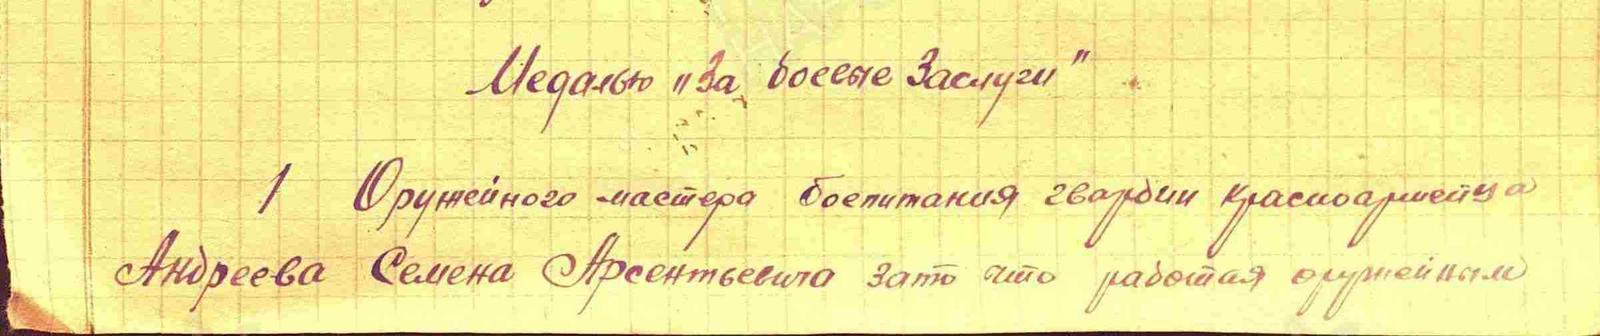 Медалью „За боевые Заслуги"
1 Оружейного мастера боепитания гвардии красноармейца
Андреева Семена Арсентьевича зато что работая оружейным